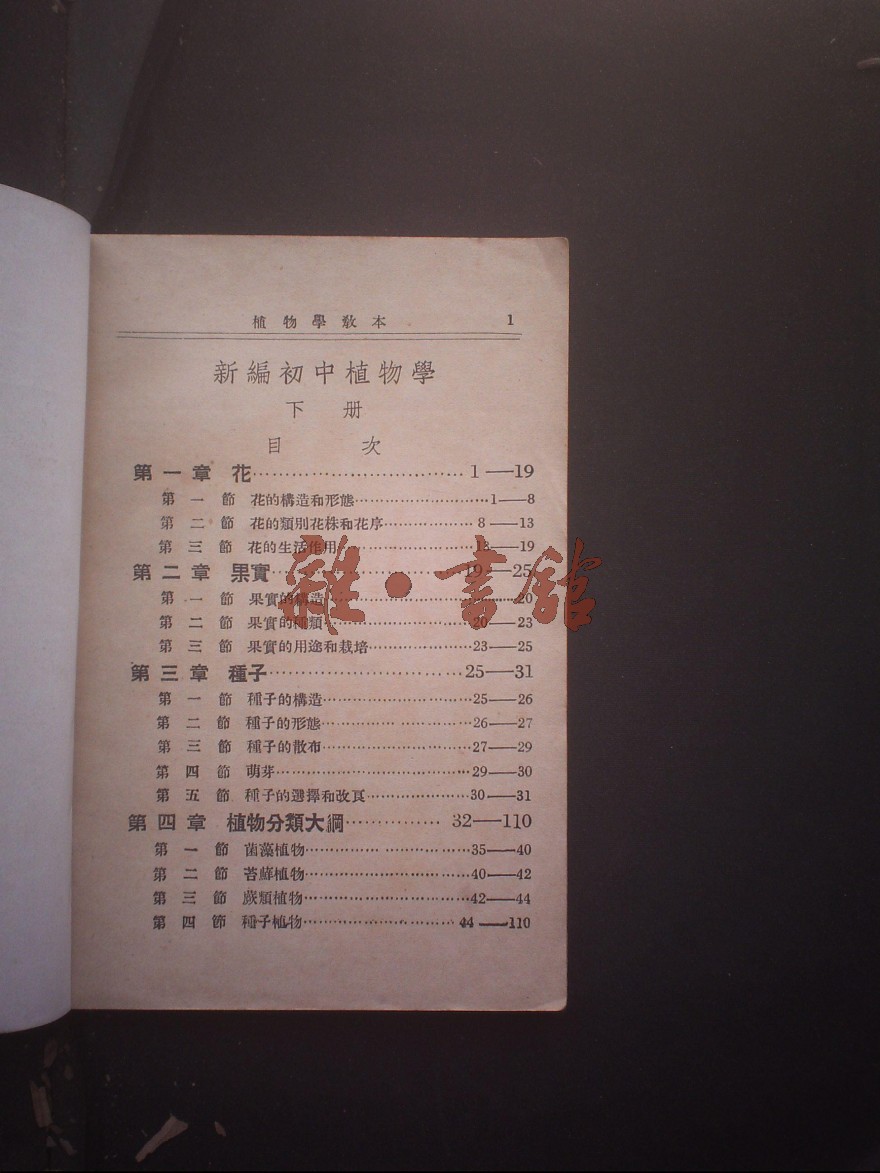 植物學教本 1
新編初中植物學
下 册
目 次
第一章 花……………………………1—19
第一節 花的構造和形態……………………1—8
第二節 花的類別花株和花序………………8—13
第三節 花的生活作用……………………13—19
第二章 果實……………………………19—25
第一節 果實的構造………………………20
第二節 果實的種類……………………20—23
第三節 果實的用途和栽培………………23—25
第三章 種子……………………………25—31
第一節 種子的構造……………………25—26
第二節 種子的形態……………………26—27
第三節 種子的散布……………………27—29
第四節 萌芽…………………………29—30
第五節 種子的選擇和改良………………30—31
第四章 植物分類大綱……………32—110
第一節 菌藻植物……………………35—40
第二節 苔蘚植物……………………40—42
第三節 蕨類植物……………………42—44
第四節 種子植物……………………44—110
雜·書館